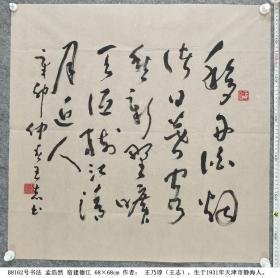 移舟泊烟
渚日暮客
愁新野曠
天低树江清
月近人
辛卯仲春王志书
B8162号书法 孟浩然 宿建德江 68×68cm 作者： 王乃谆（王志），生于1931年天津市静海人。